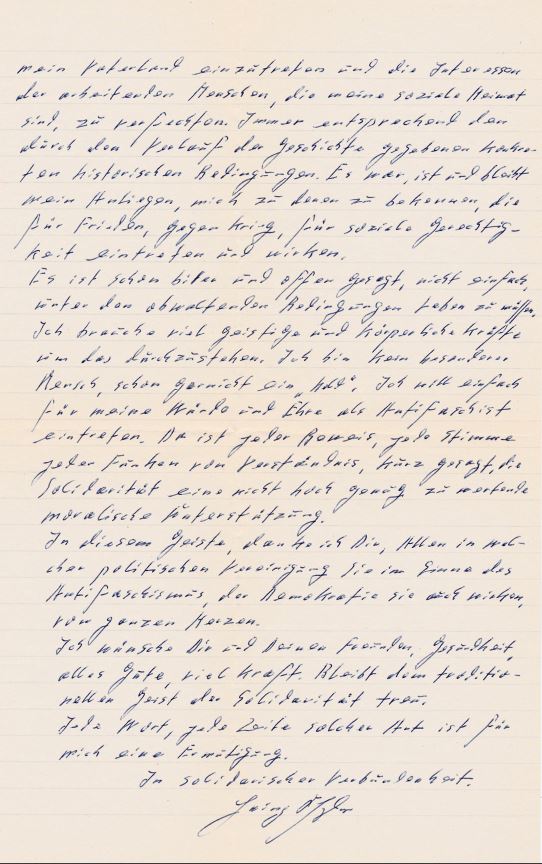 mein Vaterland einzutreten und die Interessen
der arbeitenden Menschen, die meine soziale Heimat
sind, zu verfechten. Immer entsprechend den
durch den Verlauf der Geschichte gegebenen konkre-
ten historischen Bedingungen. Es war, ist und bleibt
mein Anliegen, mich zu denen zu bekennen, die
für Frieden, gegen Krieg, für soziale Gerechtig-
keit eintreten und wirken.
Es ist schon bitter und offen gesagt, nicht einfach,
unter den obwaltenden Bedingungen leben zu müssen.
Ich brauche viel geistige und körperliche Kräfte
um das durchzustehen. Ich bin kein besonderer
Mensch, schon garnicht ein „Held". Ich will einfach
für meine Würde und Ehre als Antifaschist
eintreten. Da ist jeder Beweis, jede Stimme
jeder Funken von Verständnis, kurz gesagt, die
Solidarität eine nicht hoch genug zu wertende
moralische Unterstützung.
In diesem Geiste, danke ich Dir, Allen in wel-
cher politischen Vereinigung Sie im Sinne des
Antifaschismus, der Demokratie sie auch wirken,
von ganzen Herzen.
Ich wünsche Dir und Deinen Freunden, Gesundheit,
alles Gute, viel Kraft. Bleibt dem traditio-
nellen Geist der Solidarität treu.
Jede Wort, jede Zeile solcher Art ist für
mich eine Ermutigung.
In solidarischer Verbundenheit.